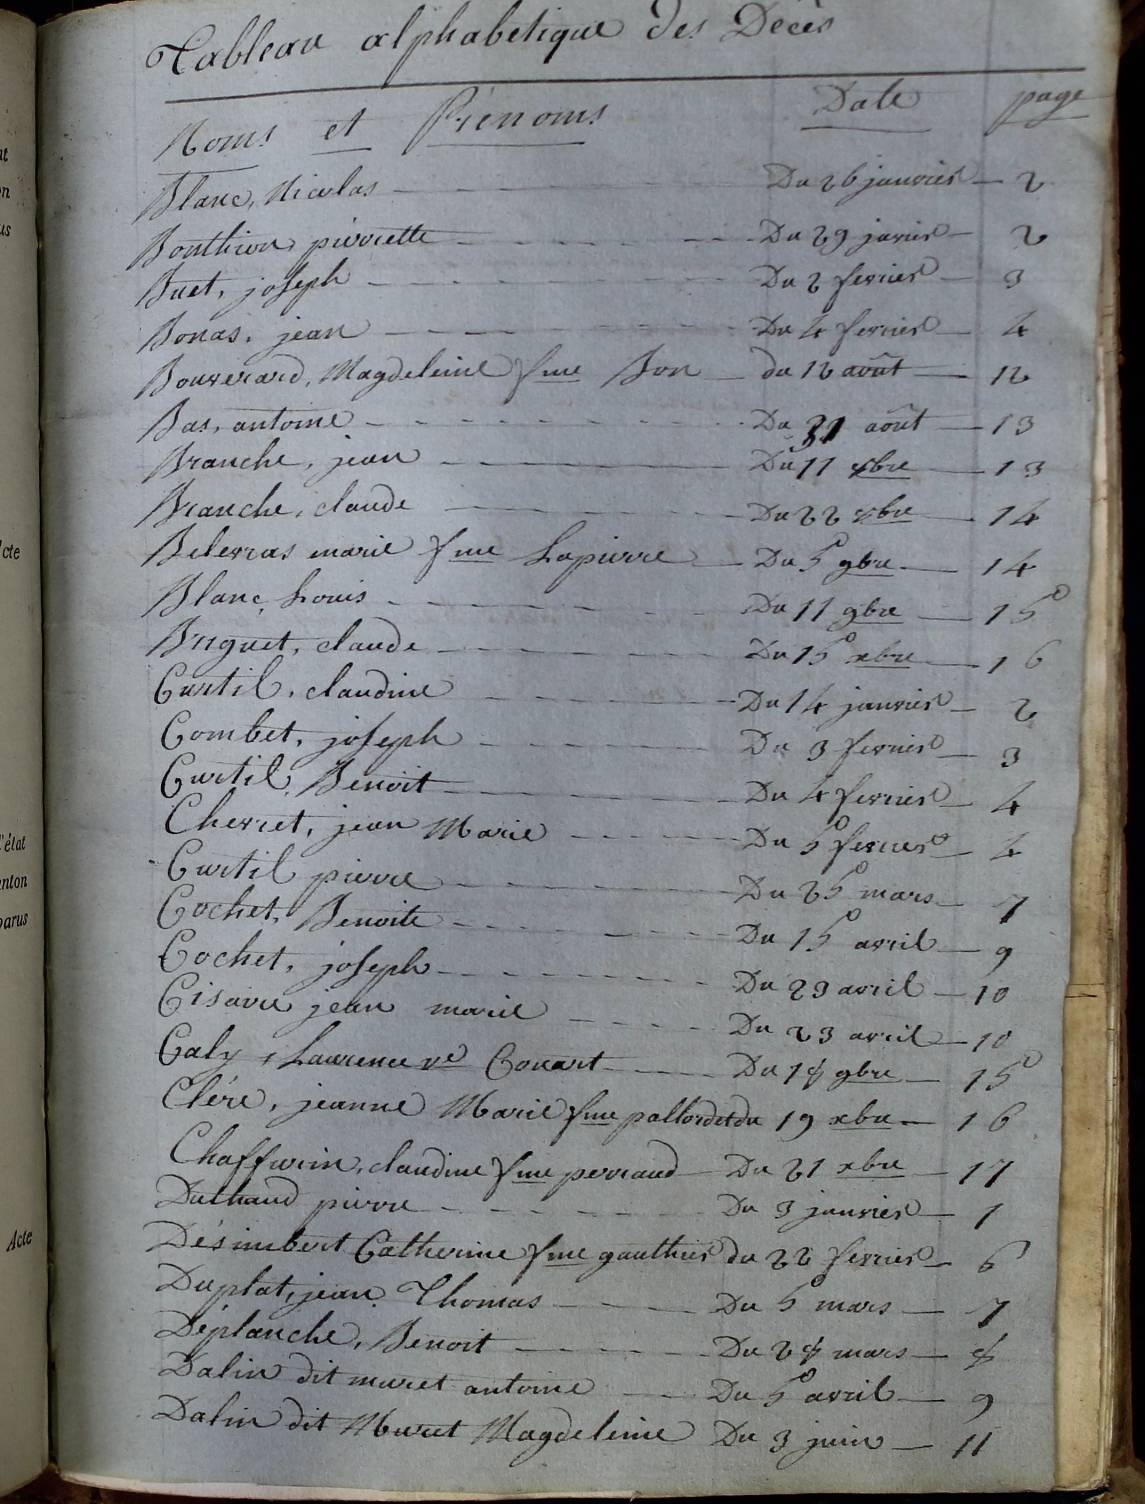 Tableau alphabetique des Décès
Noms et Prénoms Date page
Blanc, Nicolas Du 26 janvier 2
Bonthion pierrette Du 29 janvier 2
Buet, joseph Du 2 fevrier 3
Bonas, jean Du 4 fevrier 4
Bouverard, Magdeleine fme Bon du 12 août 12
Bas, antoine Du 31 août 13
Branche, jean Du 11 8bre 13
Branche, claude Du 22 8bre 14
Belevras marie fme Lapierre Du 5 9bre 14
Blanc, Louis Du 11 9bre 15
Briguet, claude Du 15 xbre 16
Curtil, claudine Du 14 janvier 2
Combet, joseph Du 3 fevrier 3
Curtil, Benoit Du 4 fevrier 4
Cherret, jean Marie Du 5 fevrier 4
Curtil pierre Du 25 mars 7
Cochet, Benoite Du 15 avril 9
Cochet, joseph Du 23 avril 10
jean marie Du 23 avril 10
Caly, Laurence ve Couart Du 18 9bre 15
Clére, jeanne Marie fme pallordet du 19 xbre 16
Chaffurin, claudine fme perraud Du 21 xbre 17
Duthaud pierre Du 3 janvier 1
Désimbert Catherine fme gauthier du 22 fevrier 6
Duplat, jean Thomas Du 5 mars 7
Déplanche, Benoit Du 28 mars 8
Dalin dit muret antoine Du 5 avril 9
Dalin dit Muret Magdeleine Du 3 juin 11
Acte
l'état
Acte